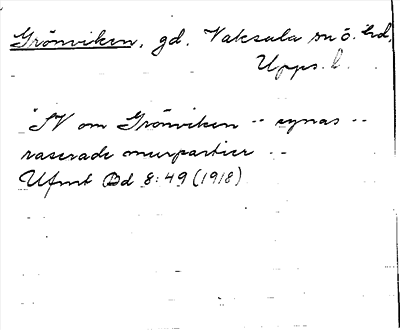 Grönviken, gd, Vaksala sn ö. hd,
Upps. l.
"SV om Grönviken -- synas --
raserade murpartier --
Ufmt Bd 8:49 (1918)